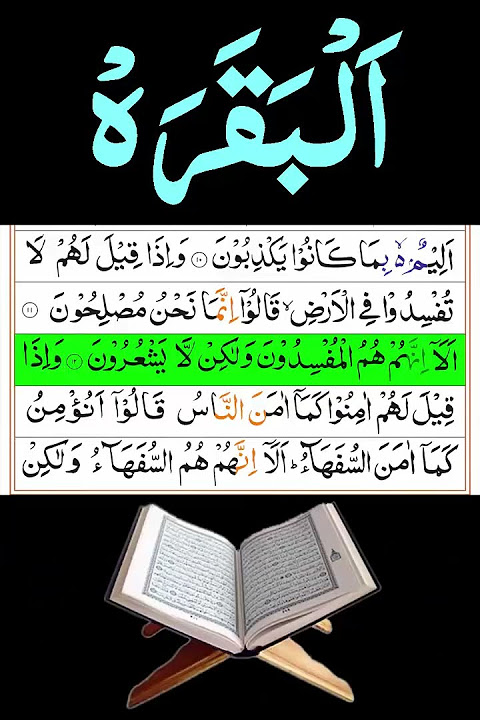 اَلْبَقَرَهْ
اَلِيْمٌۢ ۙ۬ بِمَا كَانُوْا يَكْذِبُوْنَ ۝۱۰ وَاِذَا قِيْلَ لَهُمْ لَا
تُفْسِدُوْا فِي الْاَرْضِ ۙ قَالُوْٓا اِنَّمَا نَحْنُ مُصْلِحُوْنَ ۝۱۱
اَلَآ اِنَّهُمْ هُمُ الْمُفْسِدُوْنَ وَلٰكِنْ لَّا يَشْعُرُوْنَ ۝۱۲ وَاِذَا
قِيْلَ لَهُمْ اٰمِنُوْا كَمَآ اٰمَنَ النَّاسُ قَالُوْٓا اَنُؤْمِنُ
كَمَآ اٰمَنَ السُّفَهَآءُ ؕ اَلَآ اِنَّهُمْ هُمُ السُّفَهَآءُ وَلٰكِنْ